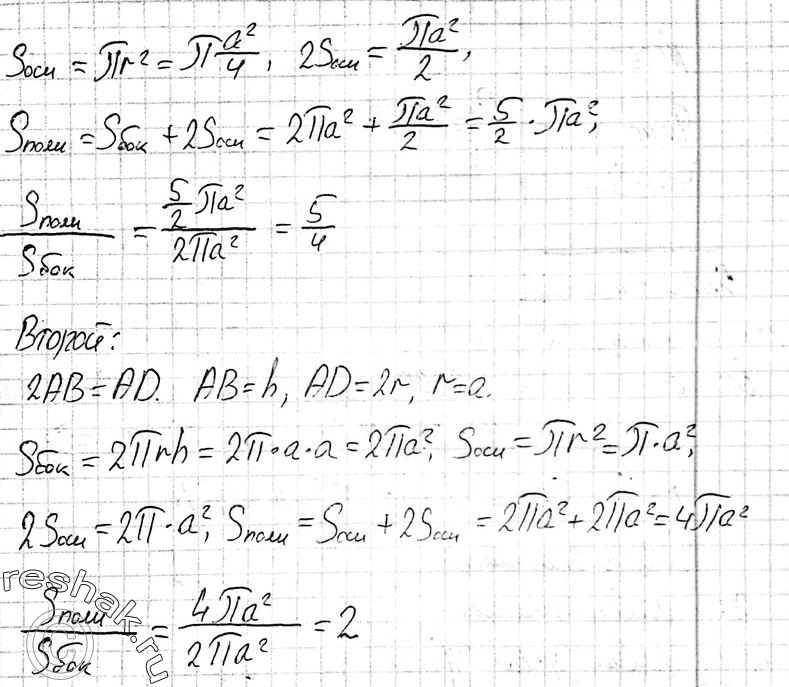 Sосн = πr² = π a²/4, 2Sосн = πa²/2,
Sполн = Sбок + 2Sосн = 2πa² + πa²/2 = 5/2 · πa²,
Sполн/Sбок = 5/2 πa² / 2πa² = 5/4
Второй:
2AB = AD. AB = h, AD = 2r, r = a.
Sбок = 2πrh = 2π · a · a = 2πa², Sосн = πr² = π · a²,
2Sосн = 2π · a², Sполн = Sосн + 2Sосн = 2πa² + 2πa² = 4πa²
Sполн/Sбок = 4πa²/2πa² = 2
reshak.ru
©